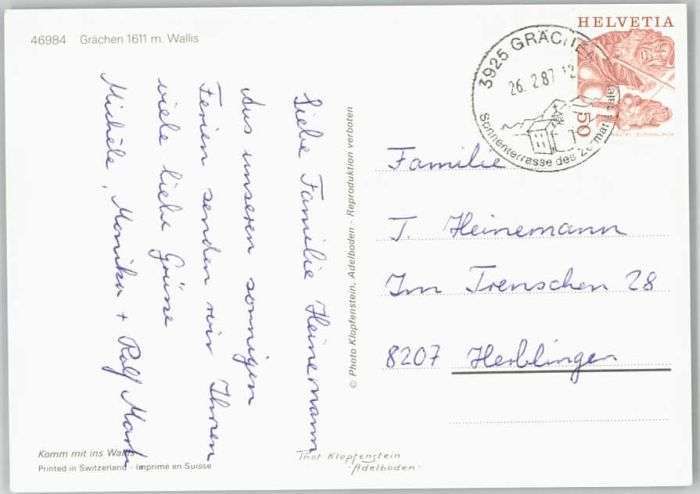 46984 Grächen 1611 m. Wallis
Liebe Familie Heinemann
Aus unseren sonnigen
Ferien senden wir Ihnen
viele liebe Grüsse
Michèle, Monika + Rolf
Komm mit ins Wallis
Printed in Switzerland - Imprimé en Suisse
© Photo Klopfenstein, Adelboden - Reproduktion verboten
Thor Klopfenstein
Adelboden
HELVETIA
50
3925 GRÄCHEN
26.2.87-12
Sonnenterrasse des Zermattertales
Familie
T. Heinemann
Im Trenschen 28
8207 Herblingen